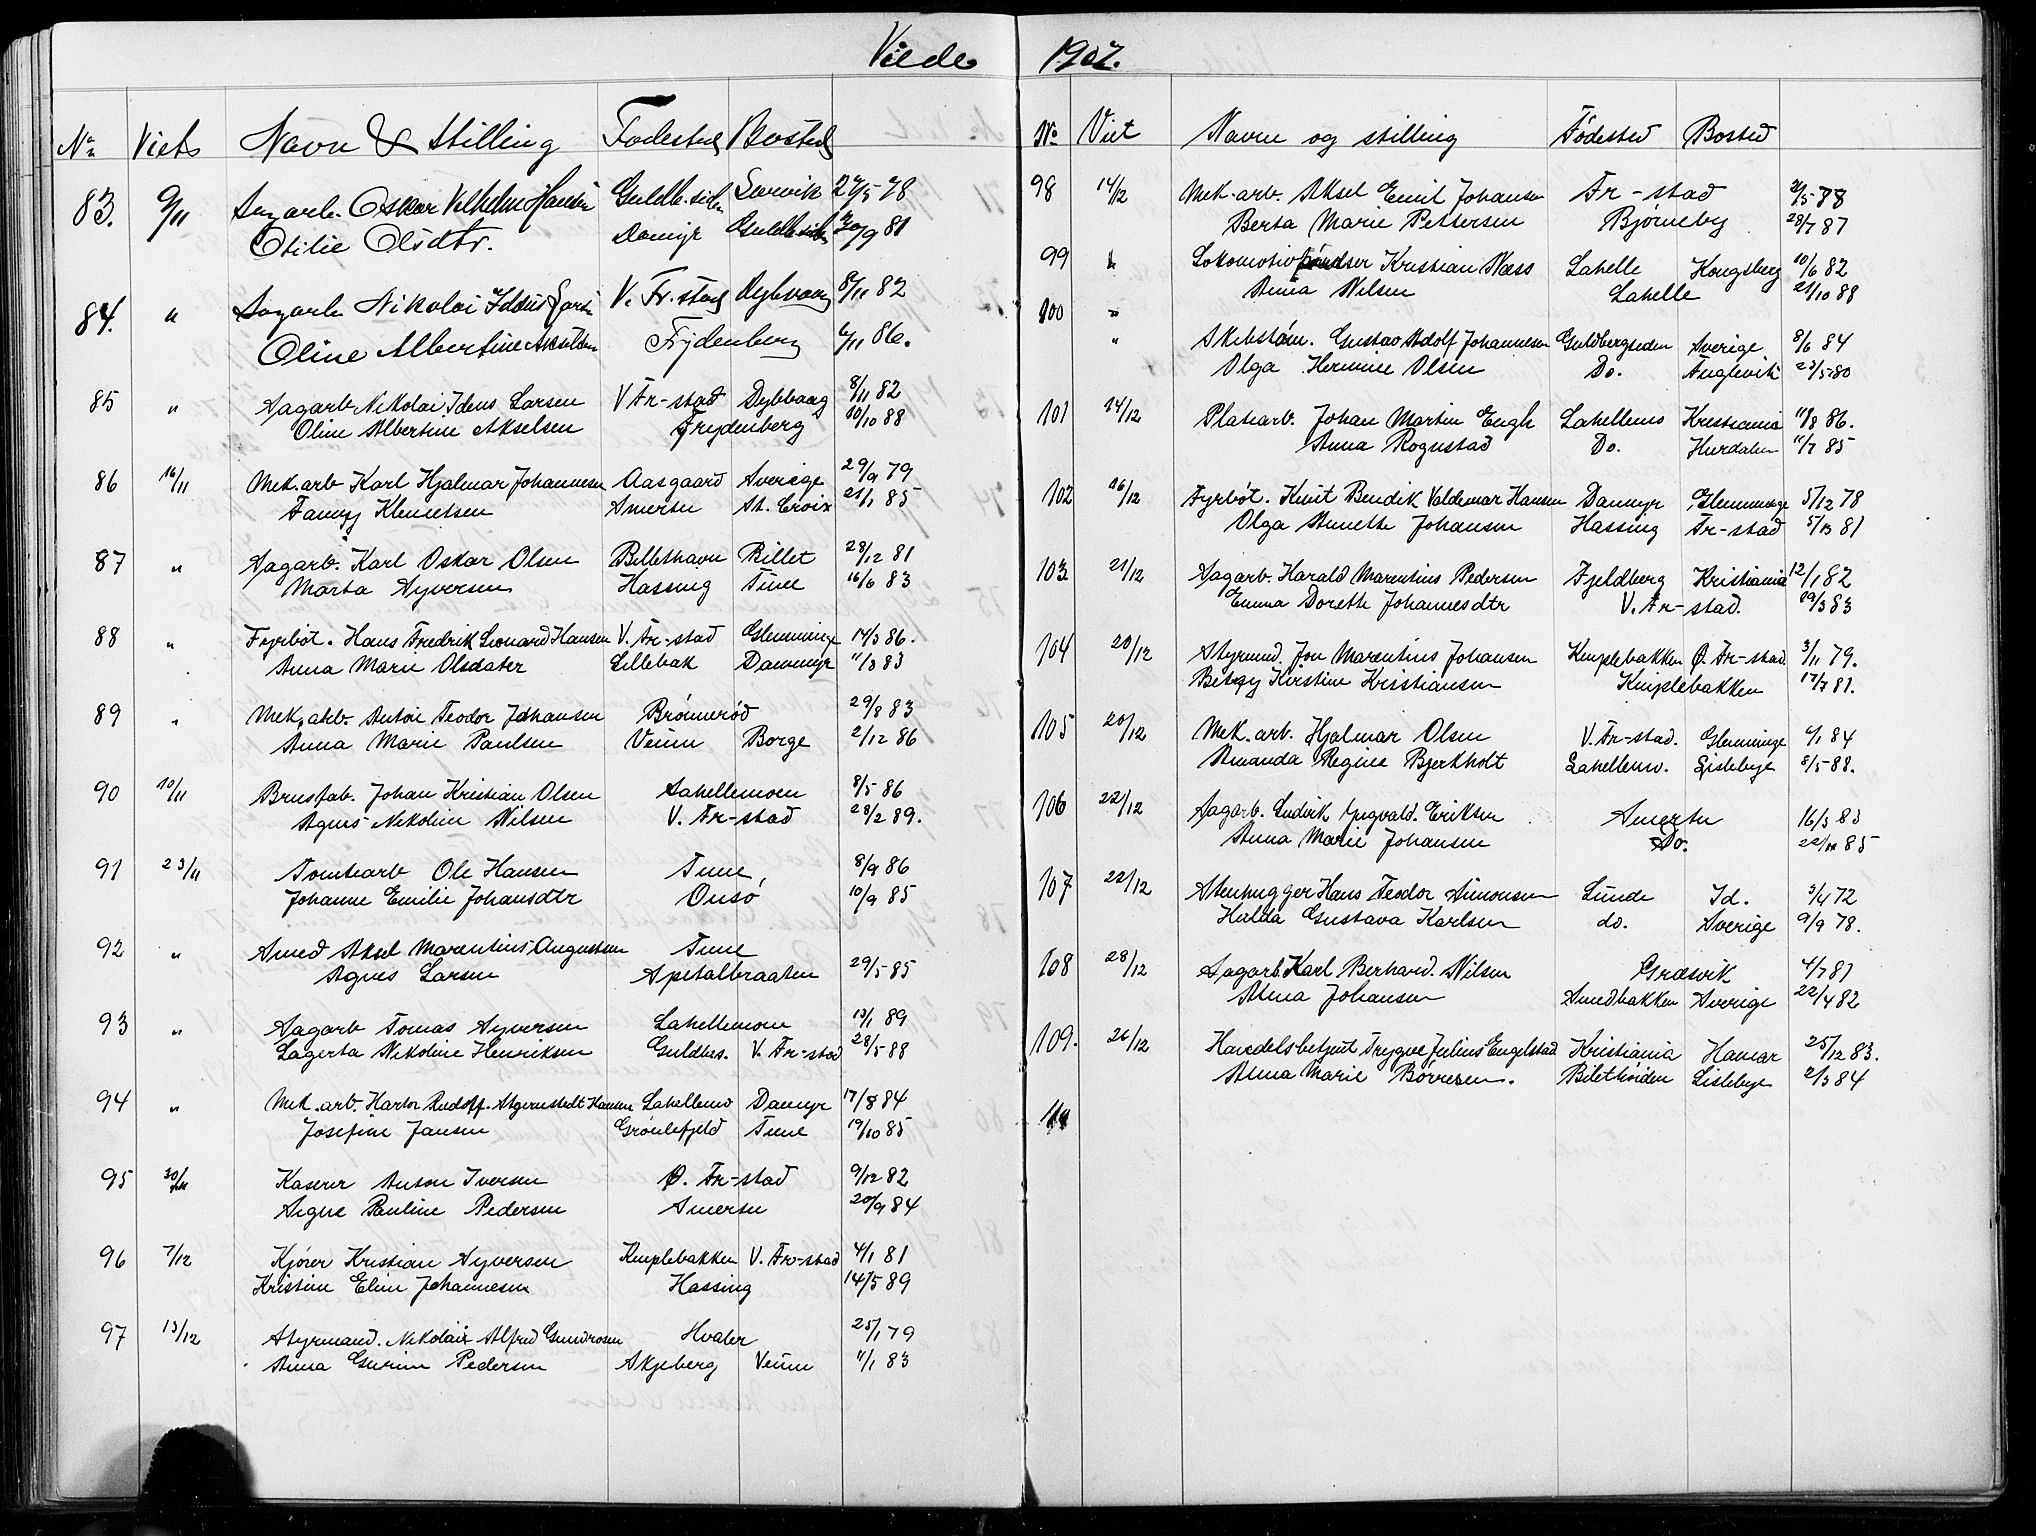 Viede 1907.
No Viets Navn & Stilling Fødested Bosted
83. 9/11 Sagarb. Oskar Vilhelm Hansen Guldb.siden Sarvik 27/5 78
Otilie Olsdtr. Dammyr Guldb.siden /9 81
84. " Sagarb Nikolai V. Fr.stad Dybvaag 8/11 82
Oline Albertine Akselsen Frydenberg 6/11 86.
85 " Sagarb Nikolai Idens Larsen V Fr-stad Dybvaag 8/11 82
Oline Albertine Akselsen Frydenberg 10/10 88
86 16/11 Mek.arb Karl Hjalmar Johannesen Aasgaard Sverige 29/9 79
Fanny Klemetsen Smertu St. Croix 21/1 85
87 " Sagarb. Karl Oskar Olsen Billethavn Rillet 28/12 81
Marta Syversen Hassing Tune 16/6 83
88 " Fyrbøt. Hans Fredrik Leonard Hansen V. Fr-stad Glemminge 14/3 86.
Anna Marie Olsdater Lillebæk Dammyr 11/3 83
89 " Mek. arb. Anton Teodor Johansen Brønnerød 29/8 83
Anna Marie Paulsen Veum Borge 2/12 86
90 10/11 Brusfab. Johan Kristian Olsen Lahellemoen 8/5 86
Agnes Nikoline Nilsen V. Fr-stad 28/2 89.
91 23/11 Tomtearb Ole Hansen Tune, 8/9 86
Johanne Emilie Johansdtr Onsø 10/9 85
92 " Smed Aksel Marentius Augustsen Tune
Agnes Larsen Spetalbraaten 29/5 85
93 " Sagarb Tomas Syversen Lahellemoen 13/1 89
Lagerta Nikoline Henriksen Guldbs. V. Fr-stad 28/5 88
94 " Mek. arb. Hartor Rudolf Stjernstedt Hansen Lahellemo Dammyr 17/8 84
Josefine Jansen Grønlifjeld Tune 19/10 85
95 30/11 Kaserer Anton Iversen Ø. Fr-stad 9/12 82
Signe Pauline Pedersen Smertu 20/9 84
96 7/12 Kjører Kristian Syversen Kniplebakken V. Fr-stad 4/1 81
Kristine Eline Johannesen Hassing 14/5 89
97 13/12 Styrmand. Nikolai Alfred Gundrosen Hvaler 25/1 79
Anna Gurine Pedersen Skjeberg Veum 11/1 83
No Viet Navn og stilling Fødested Bosted
98 14/12 Mek. arb. Aksel Emil Johansen Fr-stad /5 88
Berta Marie Pettersen Bjørneby 28/7 87
99 " Kristian Næss Lahelle Kongsberg 10/6 82
Anna Nilsen Lahelle 21/10 88
100 "
" Skibstøm. Gustav Adolf Johannesen Guldbergsiden Sverige 8/6 84
Olga Hermine Olsen Do. Fuglevik 23/5 80
101 14/12 Platearb. Johan Martin Engh Lahellemo Kristiania 11/8 86.
Anna Rognstad Do. Hurdalen 11/7 85
102 16/12 Fyrbøt. Knut Bendik Valdemar Hansen Dammyr Glemminge 5/12 78
Olga Annette Johansen Hassing Fr-stad 5/13 81
103 21/12 Sagarb. Harald Marentius Pedersen Fjeldberg Kristiania 12/1 82
Emma Dorette Johannesdtr V. Fr-stad. 19/3 83
104 20/12 Styrmd. Jon Marentius Johansen Kniplebakken Ø. Fr-stad 3/11 79.
Betsy Kirstine Kristiansen Kniplebakken 17/7 81.
105 20/12 Mek. arb. Hjalmar Olsen V. Fr-stad. Glemminge 6/1 84
Amanda Regine Bjerkholt Lahellemo. Lislebye 8/5 88.
106 22/12 Sagarb. Ludvik Yngvald. Eriksen Smertu 16/3 83
Anna Marie Johansen Do. 22/11 85
107 22/12 Stenhugger Hans Teodor Simonsen Lunde Id. 3/4 72
Hulda Gustava Karlsen do. Sverige 9/9 78.
108 28/12 Sagarb Karl Berhard. Nilsen Græsvik 4/7 81
Alma Johansen Smedbakken Sverige 22/4 82
109. 26/12 Handelsbetjent Trygve Julius Engelstad Kristiania Hamar 25/12 83.
Anna Marie Børresen. Biletkoiden Lislebye 2/3 84
110